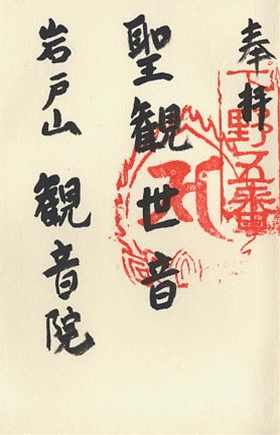 奉拝
下野五番
聖観世音
岩戸山 観音院